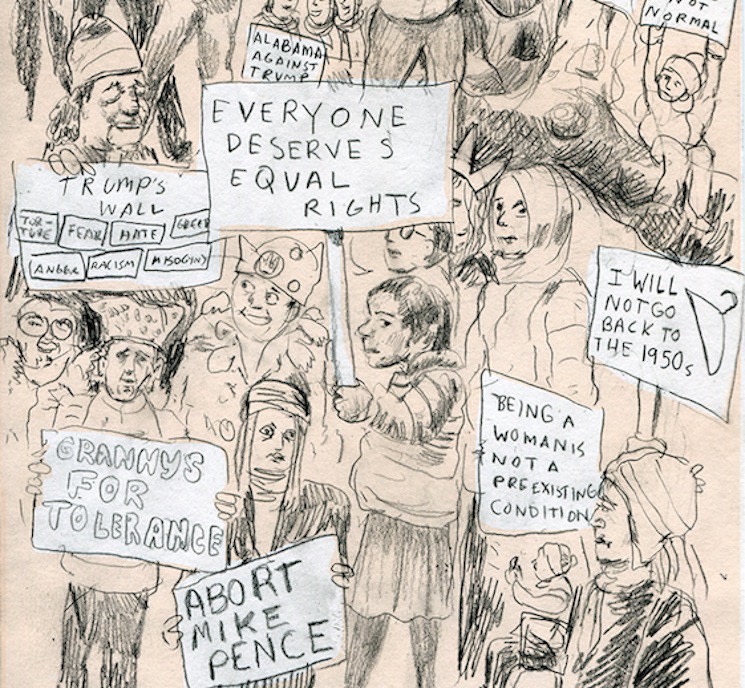 NOT
NORMAL
ALABAMA
AGAINST
TRUMP
EVERYONE
DESERVES
EQUAL
RIGHTS
TRUMP'S
WALL
TOR-
TURE
FEAR
HATE
GREED
ANGER
RACISM
MISOGYNY
I WILL
NOT GO
BACK TO
THE 1950s
BEING A
WOMAN IS
NOT A
PREEXISTING
CONDITION
GRANNYS
FOR
TOLERANCE
ABORT
MIKE
PENCE